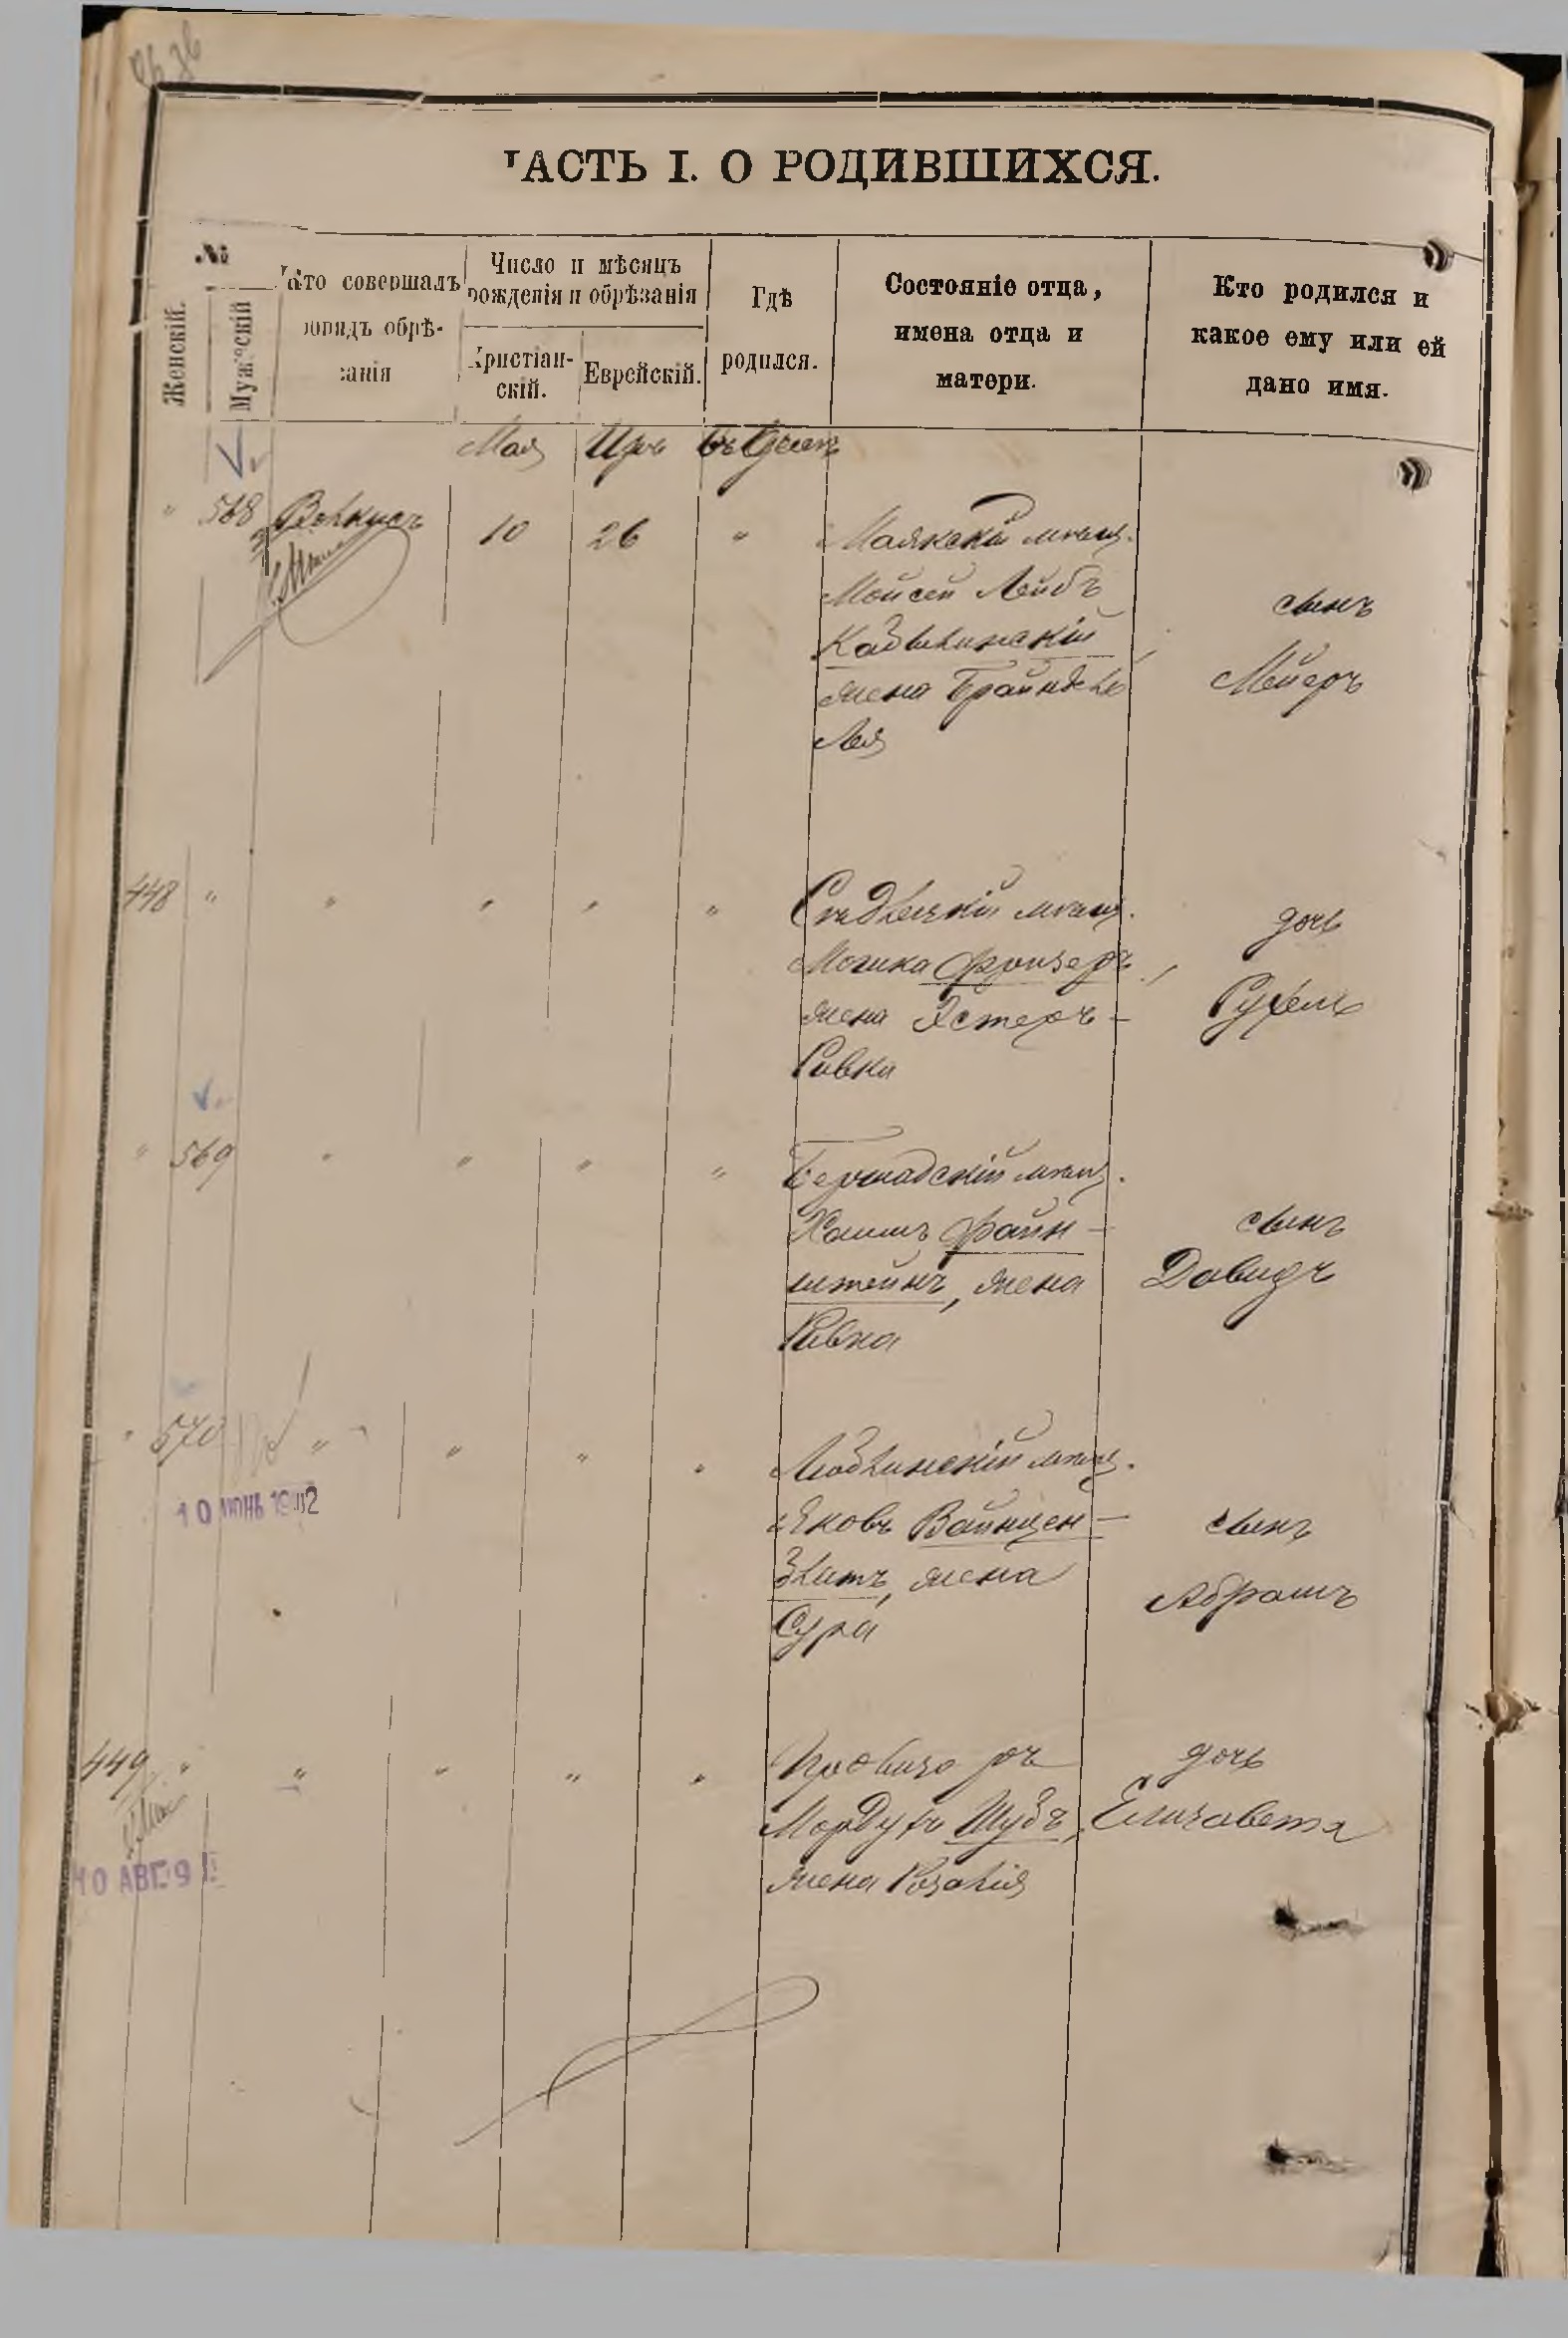 ЧАСТЬ I. О РОДИВШИХСЯ.
№
Женскій.
Мужескій
Кто совершалъ
обрядъ обрѣ-
занія
Число и мѣсяцъ
рожденія и обрѣзанія
Христіан-
скій.
Еврейскій.
Гдѣ
родился.
Состояніе отца,
имена отца и
матери.
Кто родился и
какое ему или ей
дано имя.
Мая Іръ въ Одессѣ
" 568 Волкусъ 10 26 " Маякскій мѣщ.
Мойсей Лейбъ
Кадышинскій,
жена Брайндль
Лея
сынъ
Мейеръ
448 " " " " " Сѣдлецкій мѣщ.
Мошка Фрицеръ,
жена Эстеръ-
Ривка
дочь
Рухель
" 569 " " " " Бершадскій мѣщ.
Хаимъ Файн-
штейнъ, жена
Ривка
сынъ
Давидъ
" 570 " " " " Любкинскій мѣщ.
Яковъ Вайнцен-
блитъ, жена
Сура
сынъ
Абрамъ
10 ИЮНЬ 1912
449 " " " " " Провизоръ
Мордухъ Шубъ,
жена Розалія
дочь
Елизавета
10 АВГ